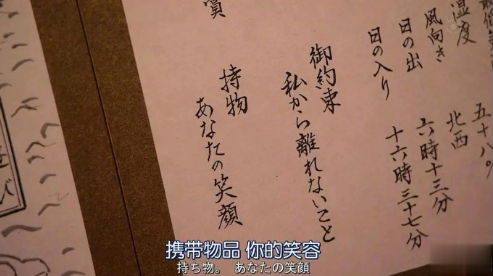 湿度
五十八%
風向き
北西
日の出
六時十三分
日の入り
十六時三十七分
御約束
私から離れないこと
持物
あなたの笑顔
携带物品 你的笑容
持ち物。 あなたの笑顔